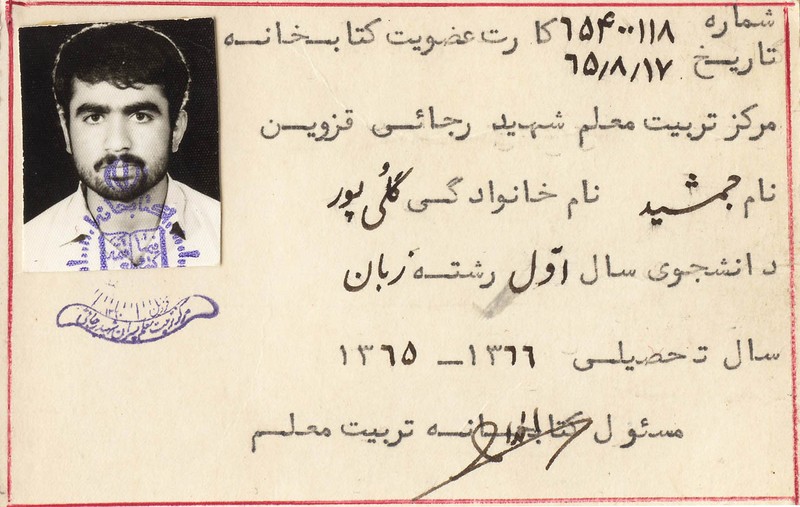 شماره ۶۵۴۰۰۱۱۸ کارت عضویت کتابخانه
تاریخ ۶۵/۸/۱۷
مرکز تربیت معلم شهید رجائی قزوین
نام جمشید نام خانوادگی گلُی پور
دانشجوی سال اوّل رشته زبان
سال تحصیلی ۱۳۶۶ـ ۱۳۶۵
مسئول کتابخانه تربیت معلم
کتابخانه
مرکز تربیت معلم پسران شهید رجائی